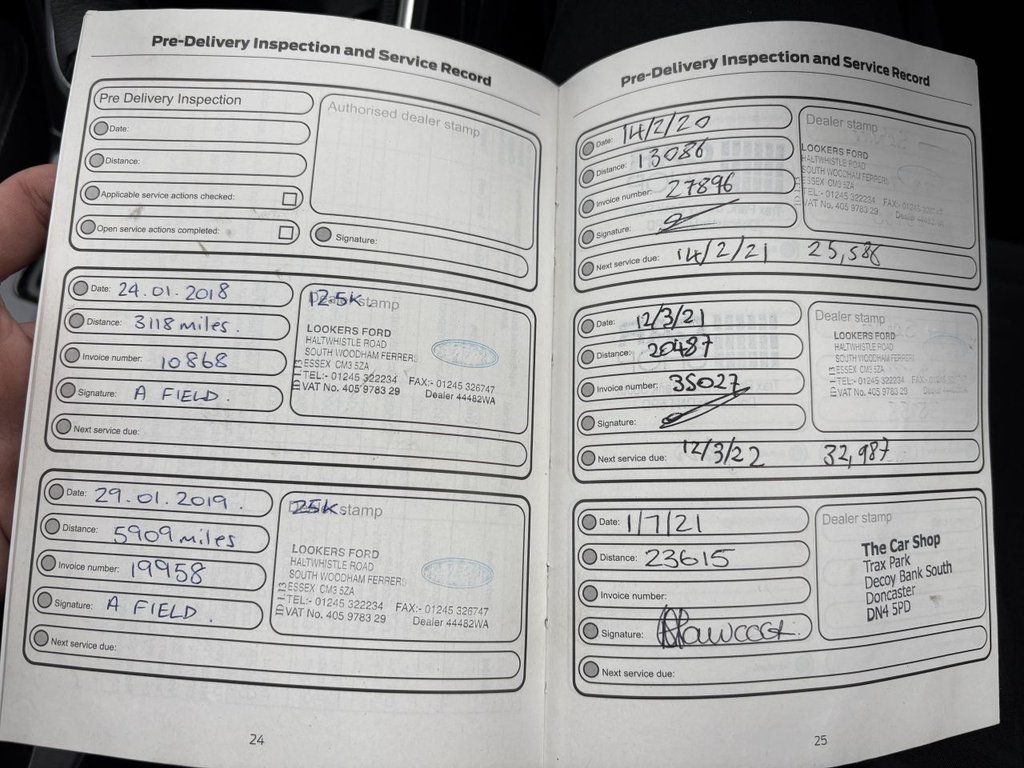 Pre-Delivery Inspection and Service Record
Pre Delivery Inspection
Date:
Distance:
Applicable service actions checked:
Open service actions completed:
Authorised dealer stamp
Signature:
Date: 24.01.2018
Distance: 3118 miles.
Invoice number: 10868
Signature: A FIELD.
Next service due:
12.5K
Dealer stamp
LOOKERS FORD
HALTWHISTLE ROAD
SOUTH WOODHAM FERRERS
ESSEX CM3 5ZA
TEL:- 01245 322234 FAX:- 01245 326747
VAT No. 405 9783 29 Dealer 44482WA
Date: 29.01.2019.
Distance: 5909 miles
Invoice number: 19958
Signature: A FIELD.
Next service due:
25K
Dealer stamp
LOOKERS FORD
HALTWHISTLE ROAD
SOUTH WOODHAM FERRERS
ESSEX CM3 5ZA
TEL:- 01245 322234 FAX:- 01245 326747
VAT No. 405 9783 29 Dealer 44482WA
24
Pre-Delivery Inspection and Service Record
Date: 14/2/20
Distance: 13086
Invoice number: 27896
Signature:
Next service due: 14/2/21 25,586
Dealer stamp
LOOKERS FORD
HALTWHISTLE ROAD
SOUTH WOODHAM FERRERS
ESSEX CM3 5ZA
TEL:- 01245 322234 FAX:- 01245
VAT No. 405 9783 29 Dealer
Date: 12/3/21
Distance: 20487
Invoice number: 35027
Signature:
Next service due: 12/3/22 32,987
Dealer stamp
LOOKERS FORD
HALTWHISTLE ROAD
SOUTH WOODHAM FERRERS
ESSEX CM3 5ZA
TEL:- 01245 322234
VAT No. 405 9783 29
Date: 1/7/21
Distance: 23615
Invoice number:
Signature:
Next service due:
Dealer stamp
The Car Shop
Trax Park
Decoy Bank South
Doncaster
DN4 5PD
25